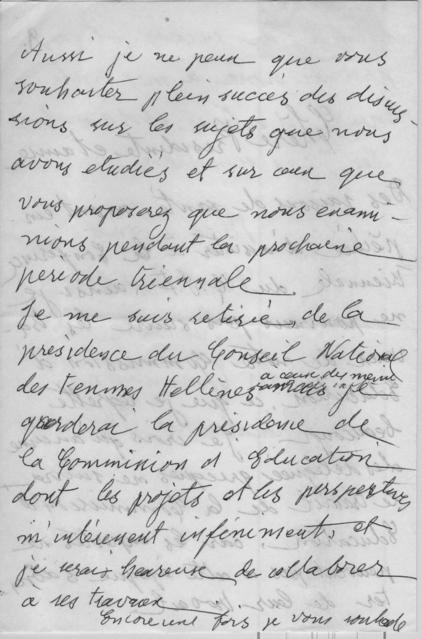 Aussi je ne peux que vous
souhaiter plein succès des discus-
sions sur les sujets que nous
avons etudiés et sur ceux que
vous proposerez que nous exami-
nions pendant la prochaine
periode triennale.
Je me suis retirée, de la
présidence du Conseil National
des Femmes Hellènes à cause de
garderai la présidence de
la Commission d'Education
dont les projets et les perspectives
m'intéressent infiniment, et
je serai heureuse de collaborer
a ses travaux
Encore une fois je vous souhaite